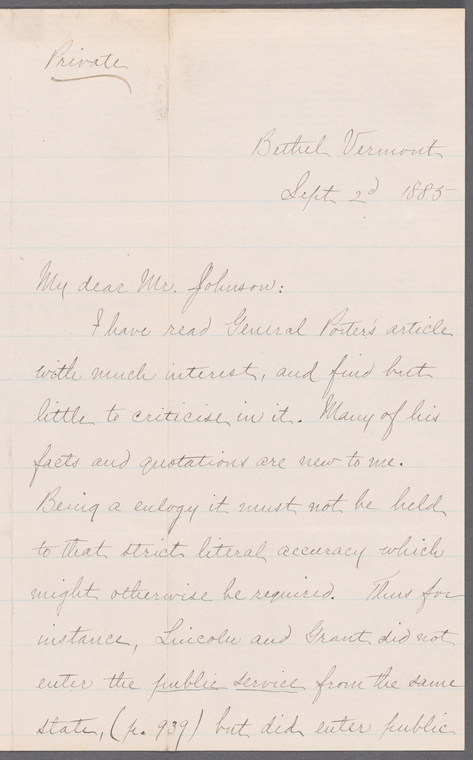 Private
Bethel Vermont
Sept 2d 1885
My dear Mr. Johnson:
I have read General Porter's article
with much interest, and find but
little to criticise in it. Many of his
facts and quotations are new to me.
Being a eulogy it must not be held
to that strict literal accuracy which
might otherwise be required. Thus for
instance, Lincoln and Grant did not
enter the public service from the same
state, (p. 939) but did enter public